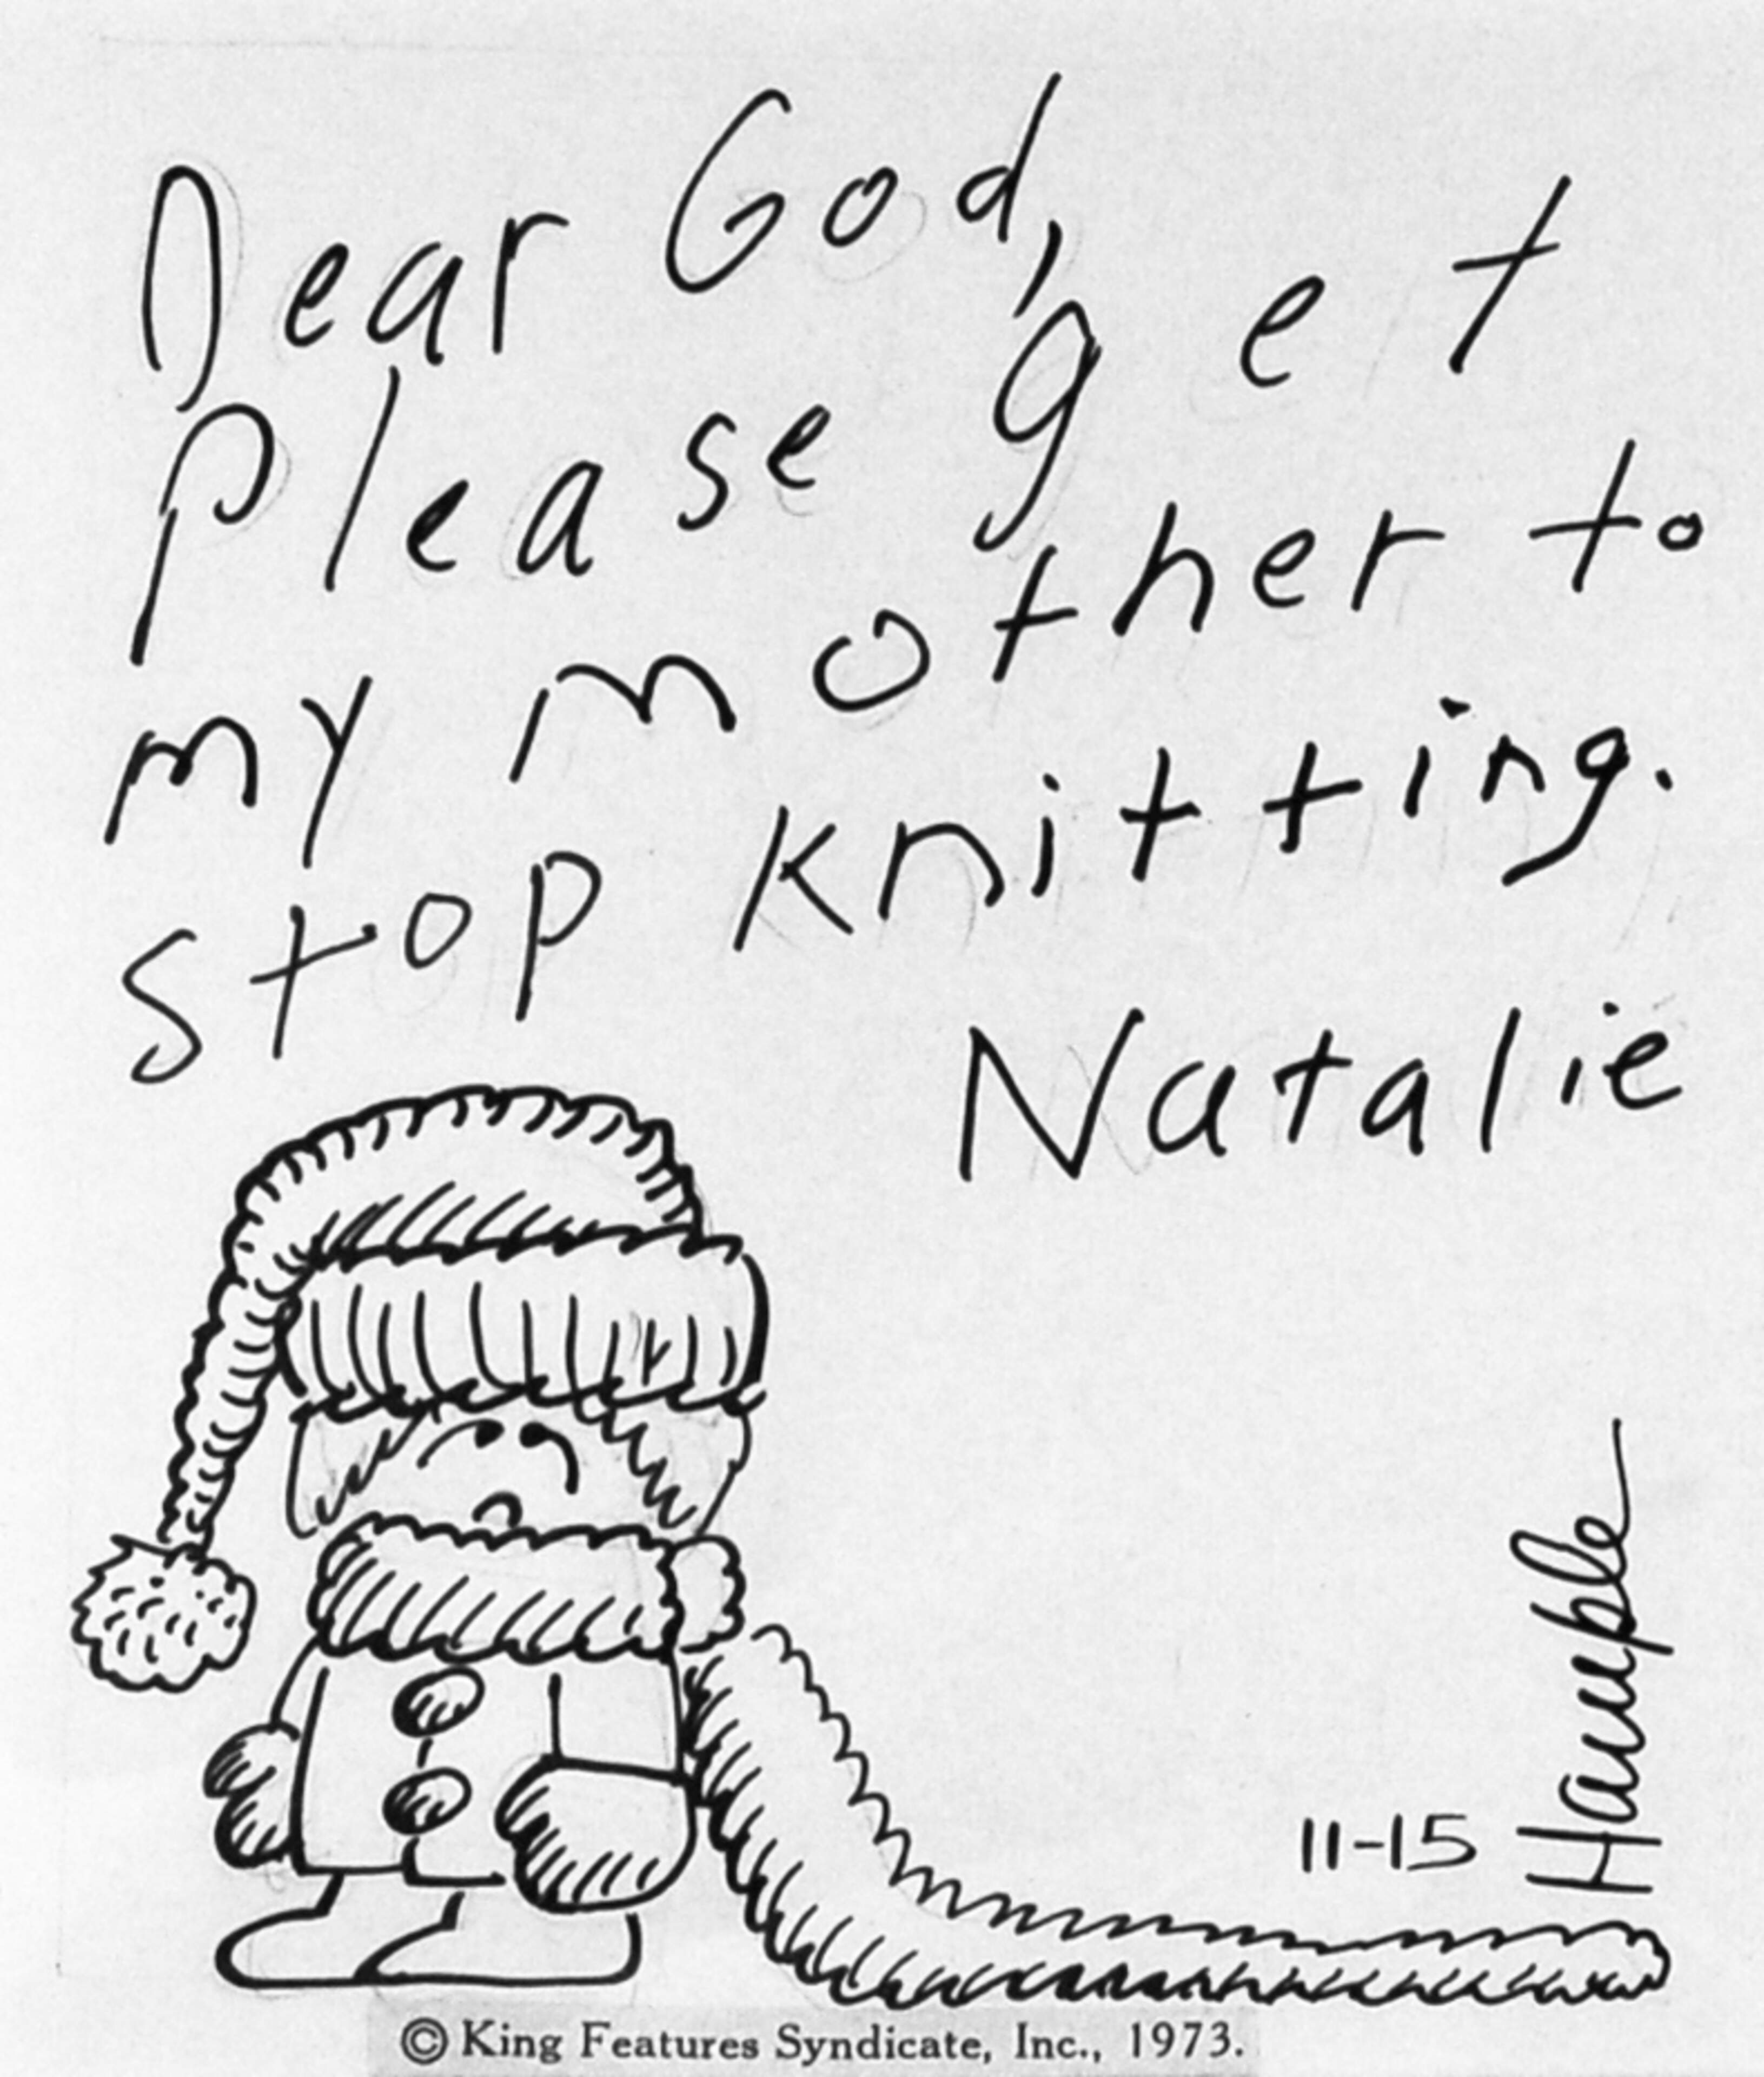 Dear God,
Please get
my mother to
stop knitting.
Natalie
11-15
Hample
© King Features Syndicate, Inc., 1973.